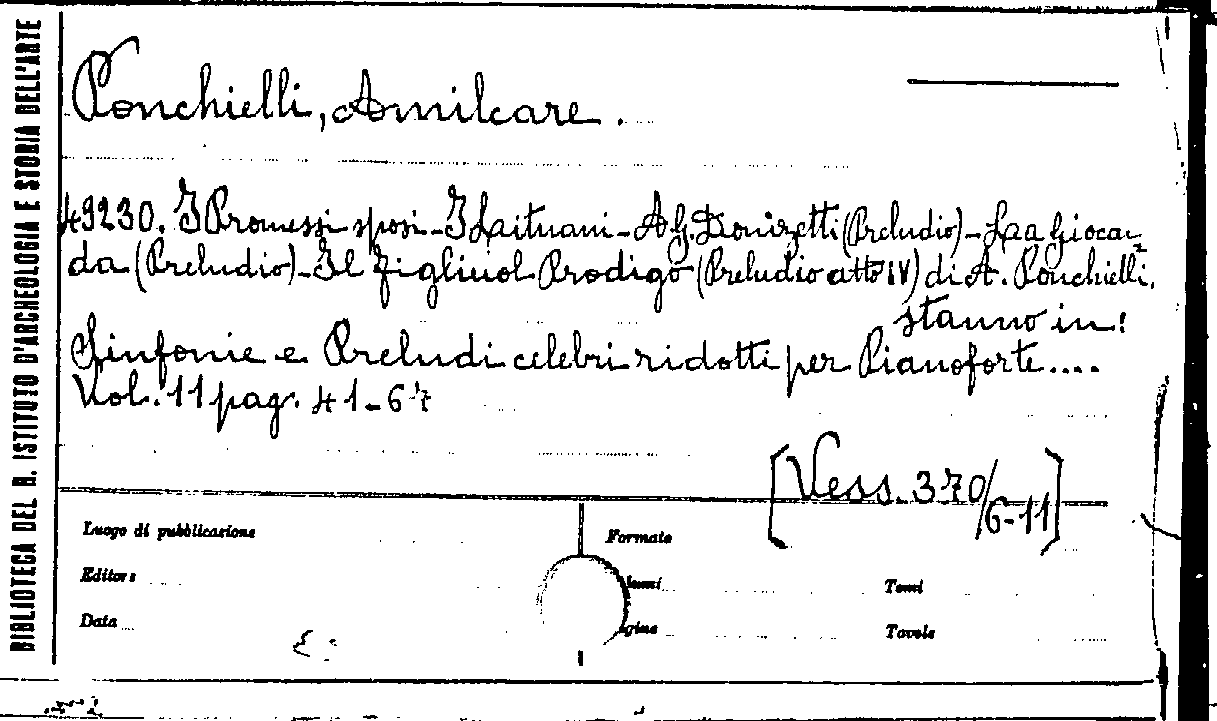 BIBLIOTECA DEL R. ISTITUTO D'ARCHEOLOGIA E STORIA DELL'ARTE
Ponchielli, Amilcare.
49230. I Promessi sposi - I Lituani - A G. Donizetti (Preludio) - La Giocon
da (Preludio) - Il figliuol Prodigo (Preludio atto IV) di A. Ponchielli.
stanno in:
Sinfonie e Preludi celebri ridotti per Pianoforte....
Vol. 11 pag. 41-67
[Vess. 370/6-11]
Luogo di pubblicazione
Formato
Editore
lumi
Tomi
Data
gine
Tavole